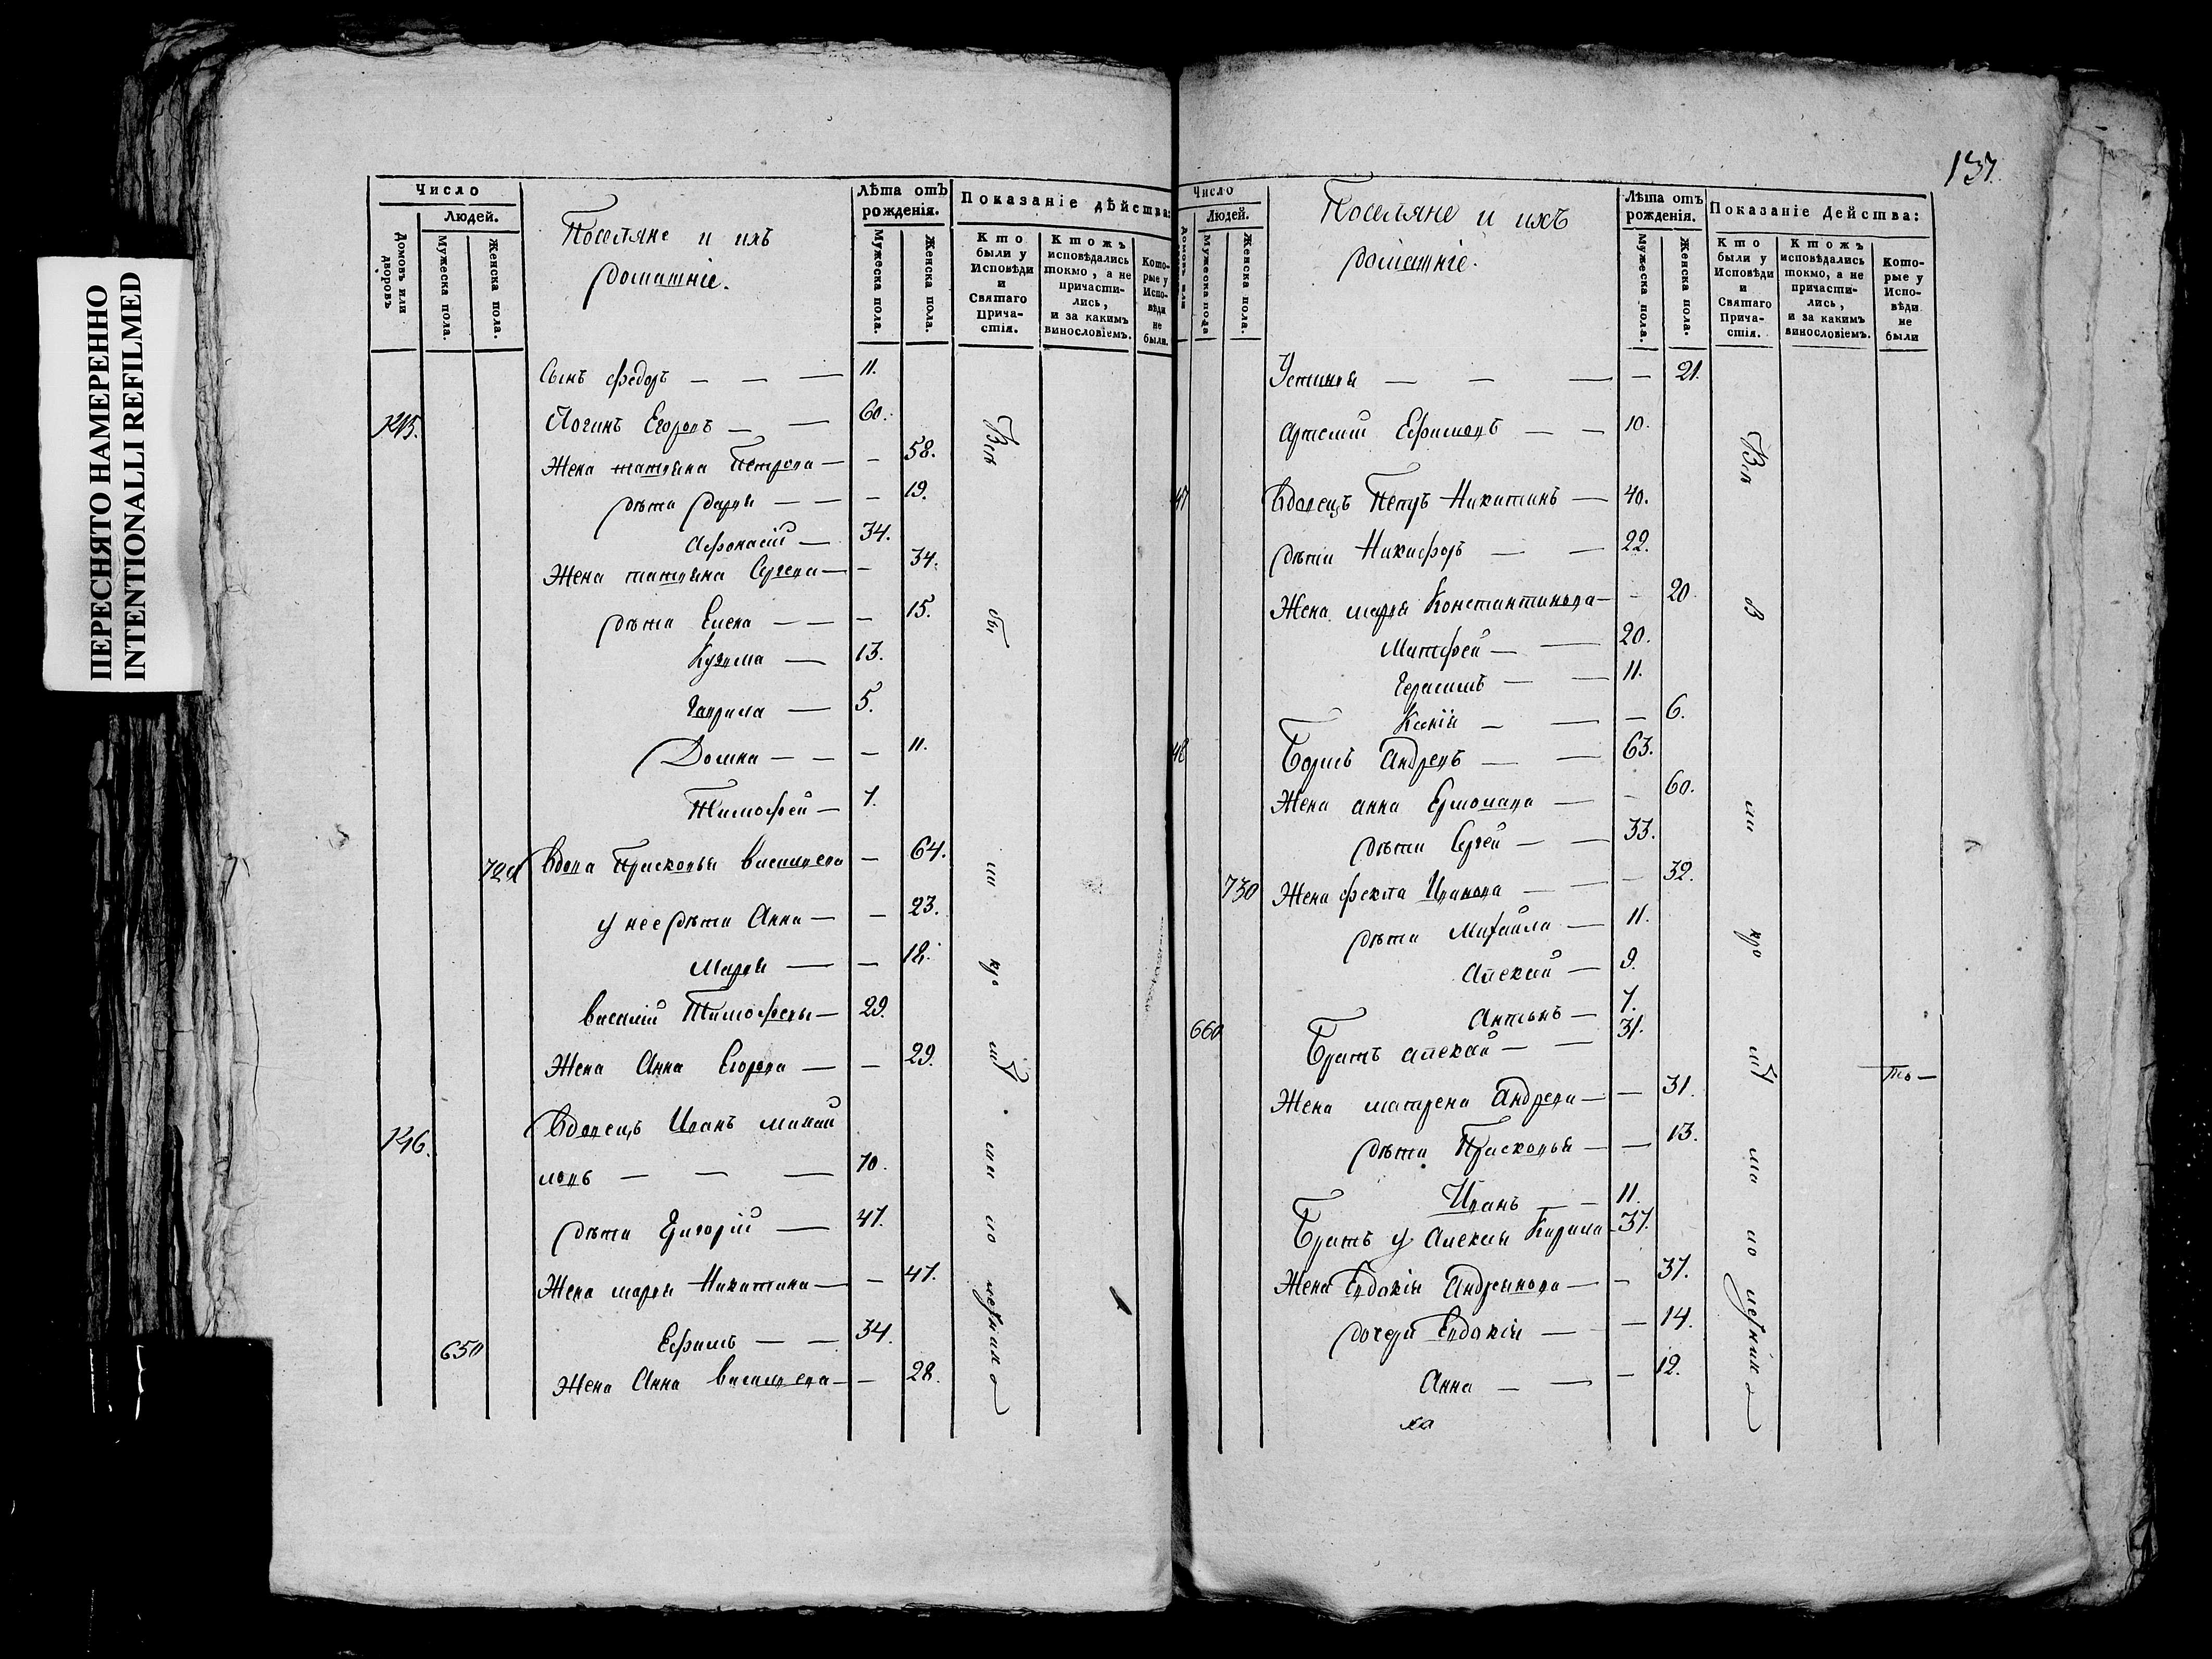 ПЕРЕСНЯТО НАМЕРЕННО
INTENTIONALLI REFILMED
Число
Людей.
Домовъ или дворовъ
Мужеска пола.
Женска пола.
Поселяне и ихъ
домашніе.
Лѣта отъ рожденія.
Мужеска пола.
Женска пола.
Показаніе дѣйства:
Кто были у Исповѣди и Святаго Прича-стія.
Ктожъ исповѣдались токмо, а не причасти-лись, и за какимъ винословіемъ.
Кото-рые у Испо-вѣди не были.
Сынъ Федоръ — — — 11.
Логинъ Егоровъ — — 60.
Жена татьяна Петрова — — 58.
дѣти Дарья — — — 19.
Афонасій — 34.
Жена татьяна Сергева — — 34.
дѣти Елена — — — 15.
Кузьма — 13.
Гаврила — 5.
Домна — — — 11.
Тимофей — 7.
Вдова Прасковья васильева — 64.
у нее дѣти Анна — — 23.
Марья — — 18.
василій Тимофеевъ — 29.
Жена Анна Егорова — — 29.
146.
Вдовецъ Иванъ михай
ловъ — — — 70.
дѣти Григорій — 47.
Жена марья Никитина — — 47.
650
Ефимъ — — 34.
Жена Анна васильева — — 28.
137.
Число
Людей.
Мужеска пола
Женска пола.
Поселяне и ихъ
домашніе.
Лѣта отъ рожденія.
Мужеска пола.
Женска пола.
Показаніе Действа:
Кто были у Исповѣди и Святаго Прича-стія.
Ктожъ исповѣдались токмо, а не причасти-лись, и за какимъ винословіемъ.
Кото-рые у Испо-вѣди не были
Устинья — — — — 21.
Артемий Ефимовъ — — 10.
47
Вдовецъ Петръ Никитинъ — 40.
дѣти Никифоръ — — 22.
Жена марья Константинова — - 20.
Матфей — — 20.
Герасимъ — — 11.
Ксенія — — — 6.
48
Борисъ Андревъ — — 63.
Жена анна Ермолаева — - 60.
дѣти Сергей — — 33.
730
Жена фекла Иванова — — - 32.
дѣти Михайла — 11.
Алексей — 9.
Антонъ — 7.
660
Братъ алексей — — 31.
Жена матрена Андреева — — 31.
дѣти Прасковья — — 13.
Иванъ — - 11.
Братъ у Алексея Кирила - 37.
Жена Евдокія Андреянова — - 37.
дочери Евдокія — — 14.
Анна — — — 12.